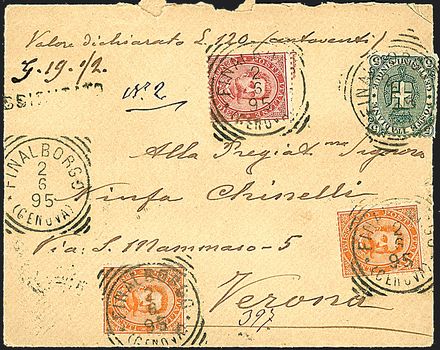 Valore dichiarato L. 120 (centoventi)
g. 19.1/2
ASSICURATO
N° 2
FINALBORGO
2
6
95
(GENOVA)
FINALBORGO
2
6
95
(GENOVA)
Alla Pregiat.ma Signora
Ninfa Chinelli
Via: S. Mammaso - 5
Verona
397
FINALBORGO
2
6
95
(GENOVA)
FINALBORGO
2
6
95